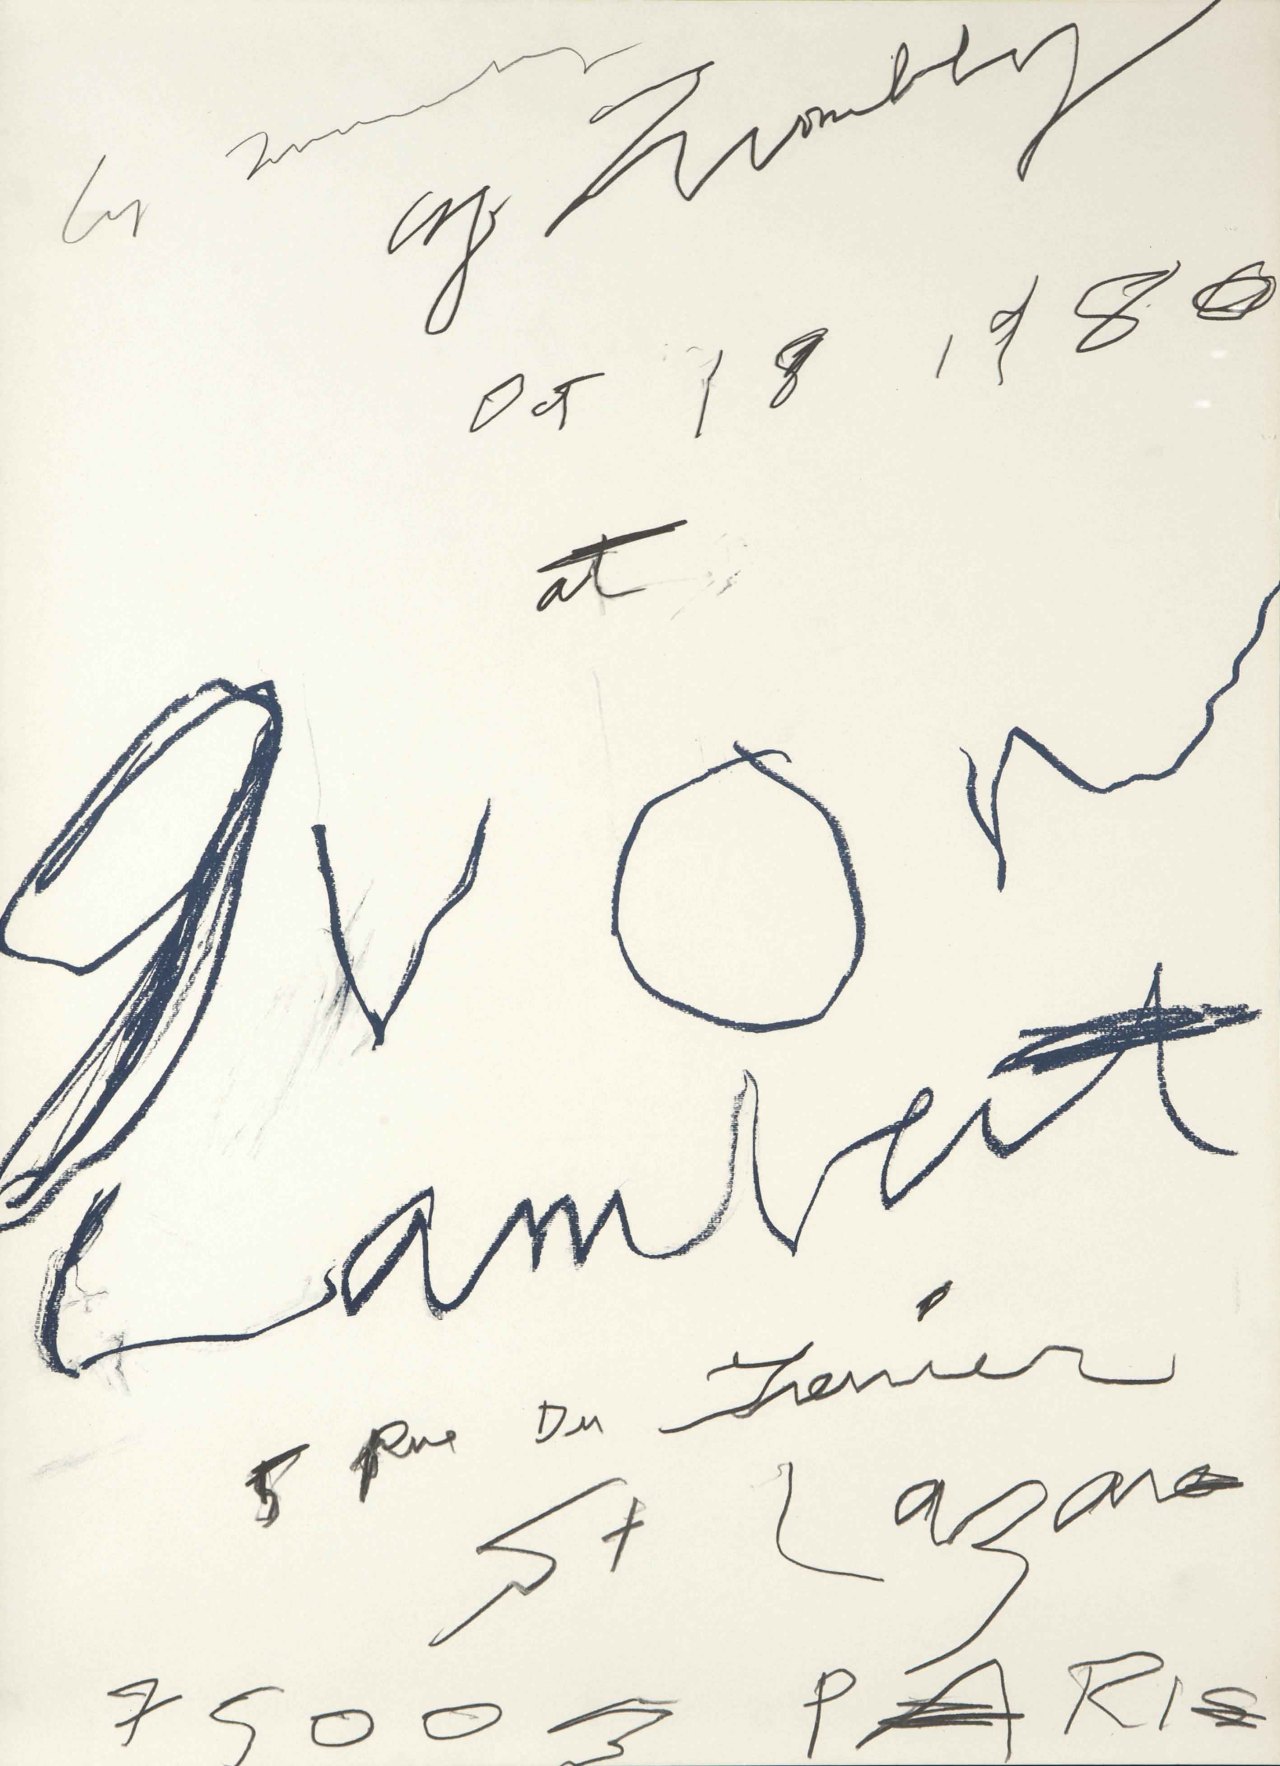 Cy Twombly
Cy Twombly
Oct 18 1980
at
Yvon
Lambert
5 Rue Du Grenier
St Lazare
75003 PARIS